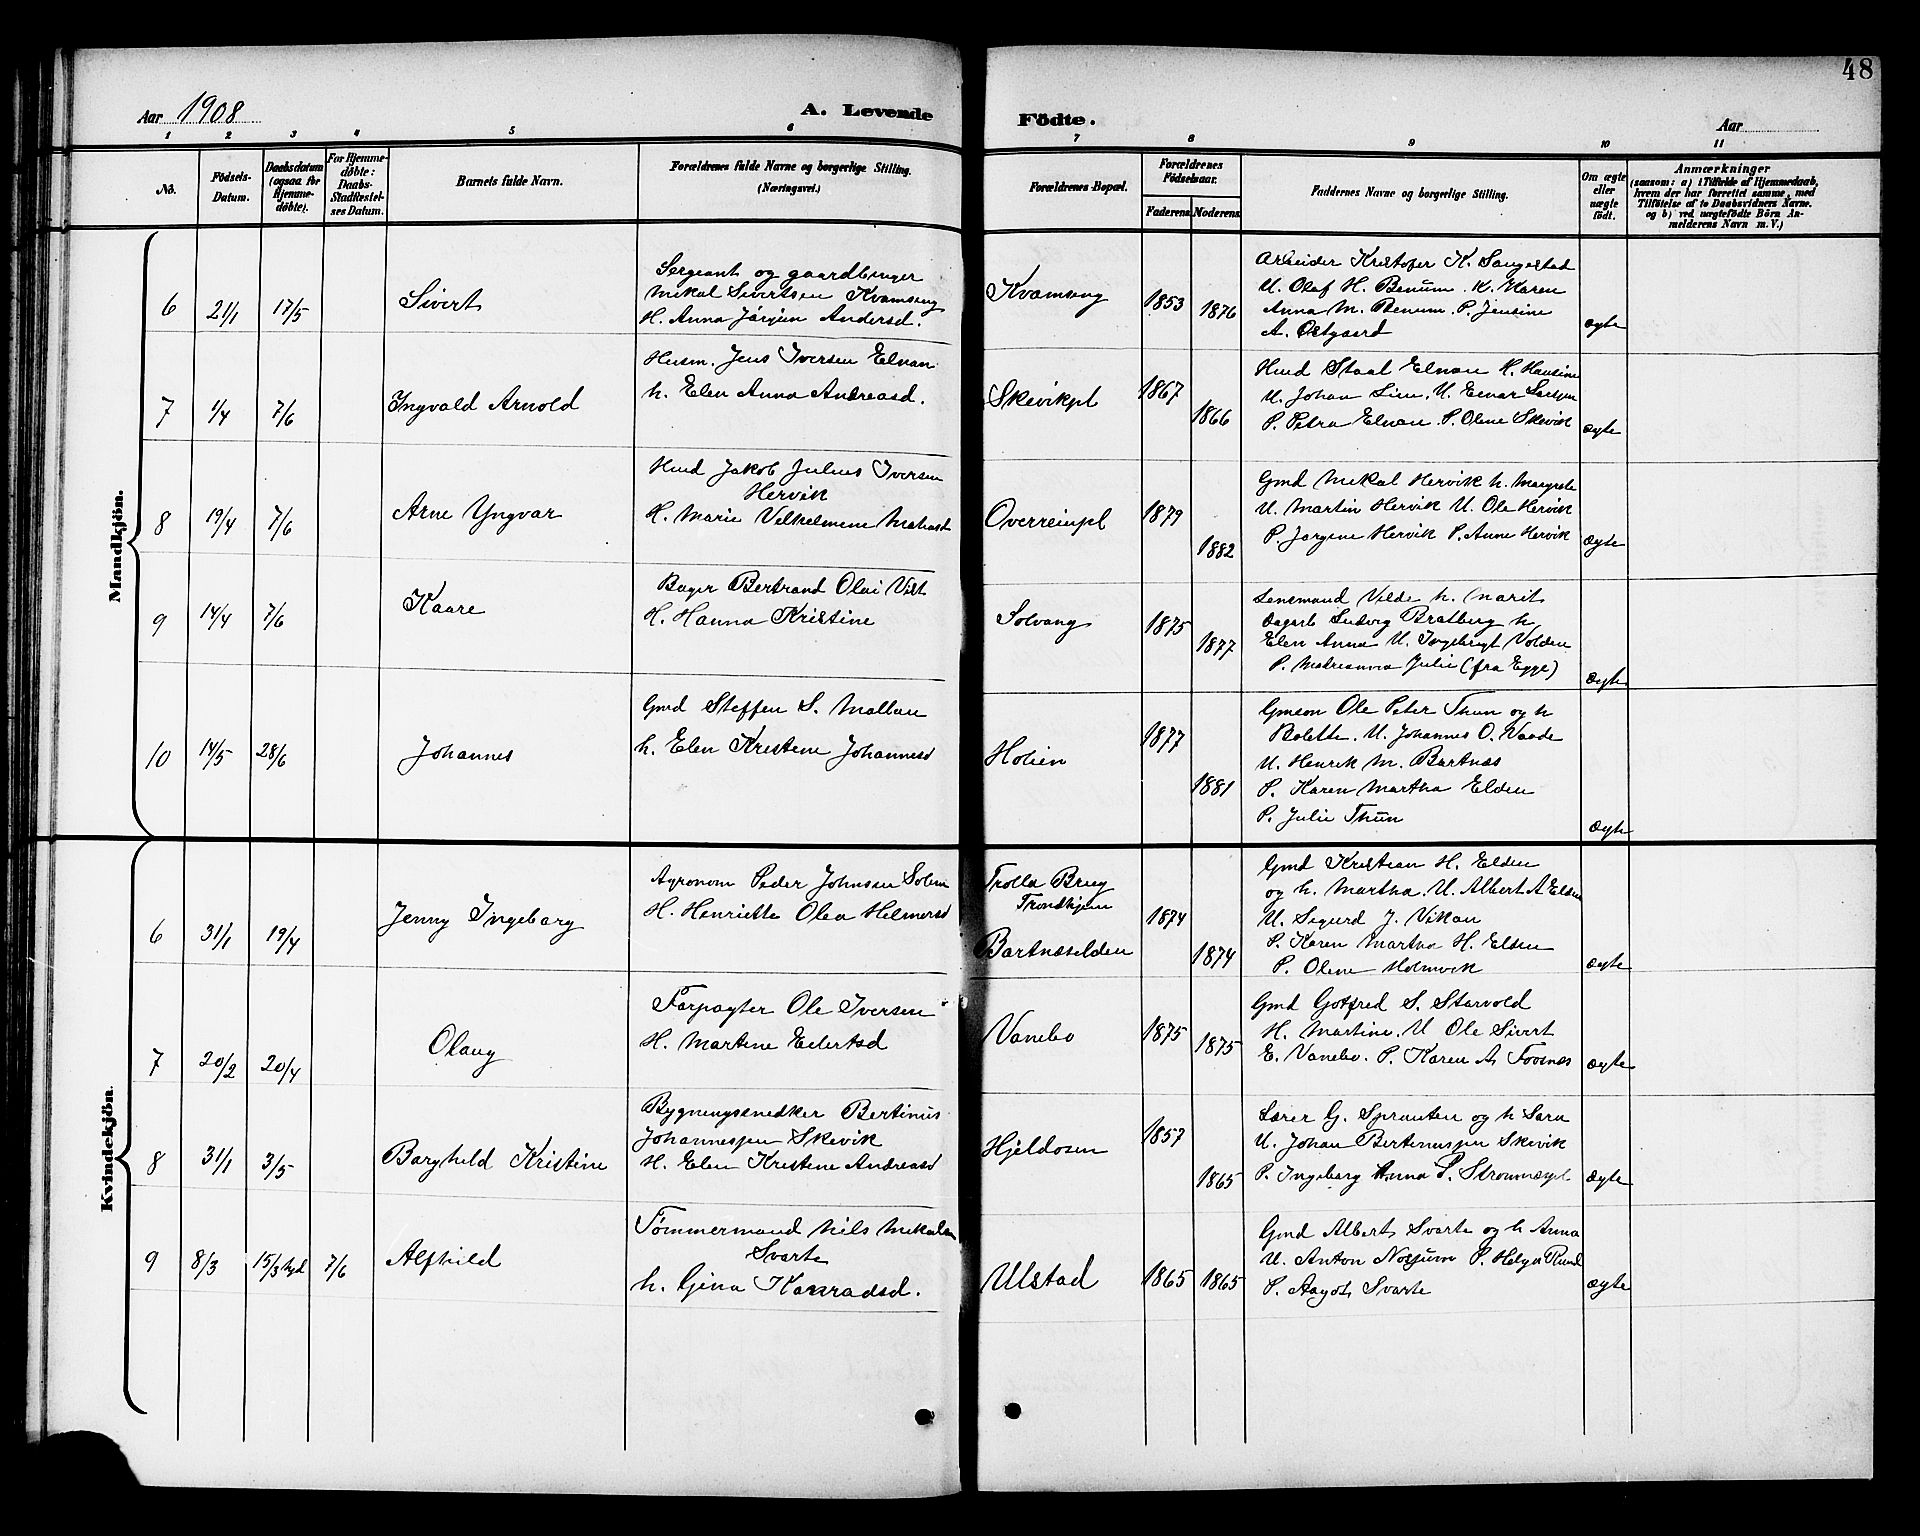 48
Aar 1908
A. Levende
Födte.
Aar
1 2 3 4 5 6 7 8 9 10 11
No.
Födsels-Datum.
Daabsdatum (ogsaa for Hjemme-døbte).
For Hjemme-døbte: Daabs-Stadfæstel-ses Datum.
Barnets fulde Navn.
Forældrenes fulde Navne og borgerlige Stilling. (Næringsvei.)
Forældrenes Bopæl.
Forældrenes Födselsaar.
Faderens. Moderens.
Faddernes Navne og borgerlige Stilling.
Om ægte eller uægte födt.
Anmærkninger
(saasom: a) i Tilfælde af Hjemmedaab,
hvem der har forrettet samme, med
Tilföielse af to Daabsvidners Navne.
og b) ved uægtefödte Börn An-
melderens Navn m. V.)
Mandkjön.
6 21/1 17/5 Sivert
Sergeant og gaardbruger
Mikal Sivertsen Kvamseng
H. Anna Jørgin Andersd.
Kvamseng 1853 1876
Arbeider Kristofer K. Saugestad
U. Olaf H. Benum. K. Karen
Anna M. Benum. P. Jensine
A. Østgaard
ægte
7 1/4 7/6 Ingvald Arnold
Husm. Jens Iversen Elnan
h. Elen Anna Andreasd.
Skevikpl 1867 1866
Hmd Staal Elnan K. Hansine
U. Johan Lien. U. Einar
P. Petra Elnan. P. Oline Skevik
ægte
8 19/4 7/6 Arne Yngvar
Hmd Jakob Julius Iversen
Hervik
H. Marie Vilhelmine
Overreinpl 1879 1882
Gmd Mikal Hervik h. Margrete
U. Martin Hervik U. Ole Hervik
P. Jørgine Hervik P. Anne Hervik
Ægte
9 14/4 7/6 Kaare
Bager Bertrand Olai Vist
H. Hanna Kristine
Solvang 1875 1877
Lensmand Vilde h. Marit
Ludvig Bratberg h
Elen Anna U. Ingebrigt Volden
P. Julie (fra Egge)
Ægte
10 14/5 28/6 Johannes
Gmd Steffen S. Møllan
h. Elen Kristine Johannesd
Holien 1877 1881
Gmson Ole Peter Thun og h
Bolette. U. Johannes O. Vaade
U. Henrik M. Bartnæs
P. Karen Martha Elden
P. Julie Thun
Ægte
Kvindekjön.
6 31/1 19/4 Jenny Ingeborg
Agronom Peder Johnsen Solem
H. Henriette Olea Helmersd
Trolla Brug
Trondhjem
Bartnæselden 1874 1874
Gmd Kristian H. Elden
og h. Martha. U. Albert A Elden
U. Sigurd J. Vikan
P. Karen Martha H. Elden
P. Oline Holmvik
Ægte
7 20/2 20/4 Olaug
Forpagter Ole Iversen
H. Martine Eilertsd
Vanebo 1875 1875
Gmd Gotfred S. Starvold
H. Martine. U Ole Sivert
E. Vanebo. P. Karen A Fovnæs
Ægte
8 31/1 3/5 Borghild Kristine
Bygningssnedker Bertinus
Johannessen Skevik
H. Elen Kristine Andreasd
Hjeldosen 1857 1865
Lærer G. Sprauten og h Sara
U. Johan Bertinussen Skevik
P. Ingeborg Anna P. Strømnæspl
Ægte
9 8/3 15/3 hjd 7/6 Alfhild
Tømmermand Nils Mikalsen
Svarte
h. Gina Konradsd.
Ulstad 1865 1865
Gmd Albert Svarte og h Anna
U. Anton Nossum P. Helga Rund
P. Aagot Svarte
ægte